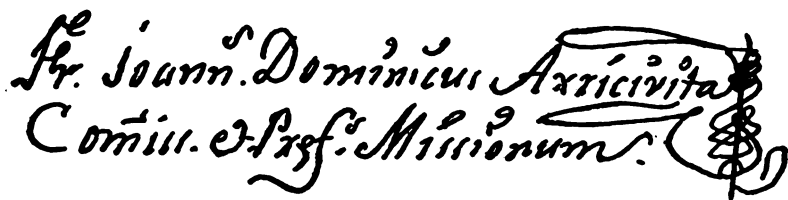 Fr. Joann.s Dominicus Arricivita
Comiss. et Præf.s Missionum.